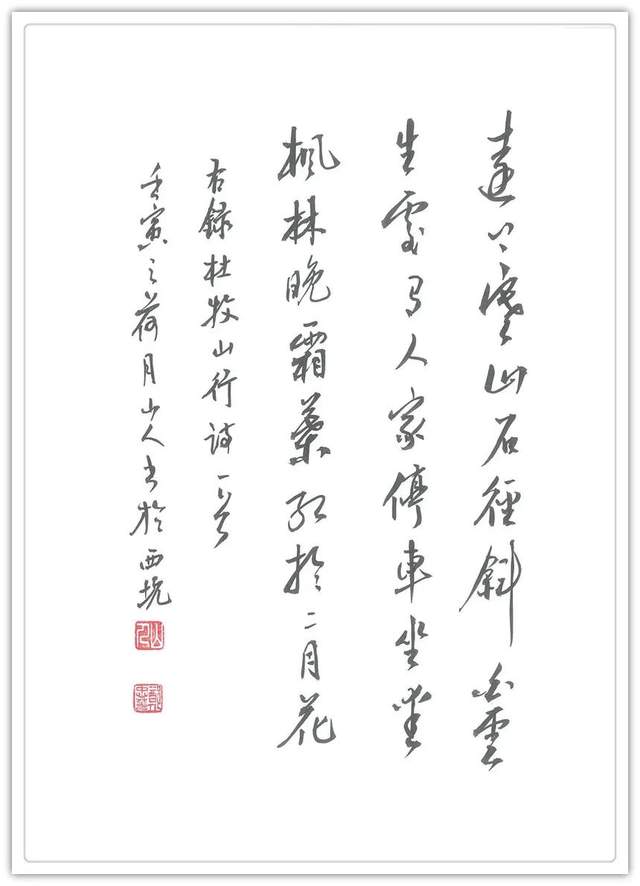 遠上寒山石徑斜白雲
生處有人家停車坐愛
楓林晚霜葉紅於二月花
右錄杜牧山行詩一首
壬寅之荷月山人書於西坑
山人